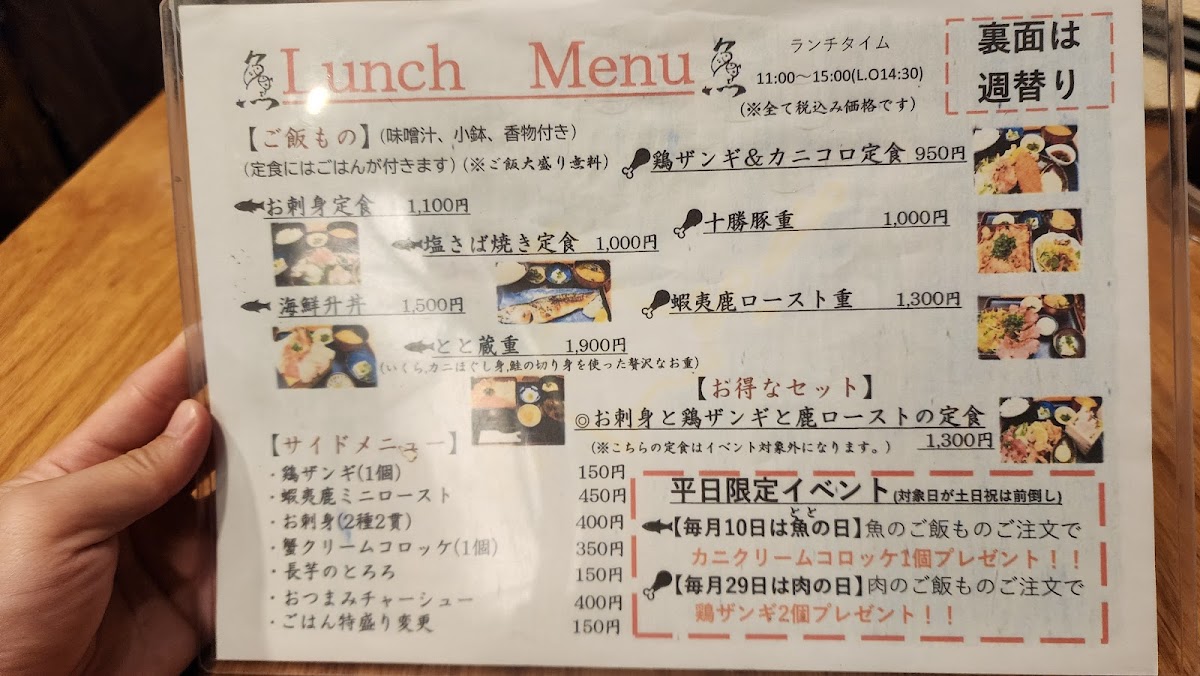 魚 Lunch Menu 魚
ランチタイム
11:00～15:00(L.O14:30)
(※全て税込み価格です)
裏面は
週替り
【ご飯もの】(味噌汁、小鉢、香物付き)
(定食にはごはんが付きます)(※ご飯大盛り無料)
お刺身定食 1,100円
塩さば焼き定食 1,000円
海鮮升丼 1,500円
とと蔵重 1,900円
(いくら,カニほぐし身,鮭の切り身を使った贅沢なお重)
鶏ザンギ&カニコロ定食 950円
十勝豚重 1,000円
蝦夷鹿ロースト重 1,300円
【お得なセット】
◎お刺身と鶏ザンギと鹿ローストの定食
(※こちらの定食はイベント対象外になります。) 1,300円
【サイドメニュー】
・鶏ザンギ(1個) 150円
・蝦夷鹿ミニロースト 450円
・お刺身(2種2貫) 400円
・蟹クリームコロッケ(1個) 350円
・長芋のとろろ 150円
・おつまみチャーシュー 400円
・ごはん特盛り変更 150円
平日限定イベント(対象日が土日祝は前倒し)
とと
【毎月10日は魚の日】魚のご飯ものご注文で
カニクリームコロッケ1個プレゼント！！
【毎月29日は肉の日】肉のご飯ものご注文で
鶏ザンギ2個プレゼント！！